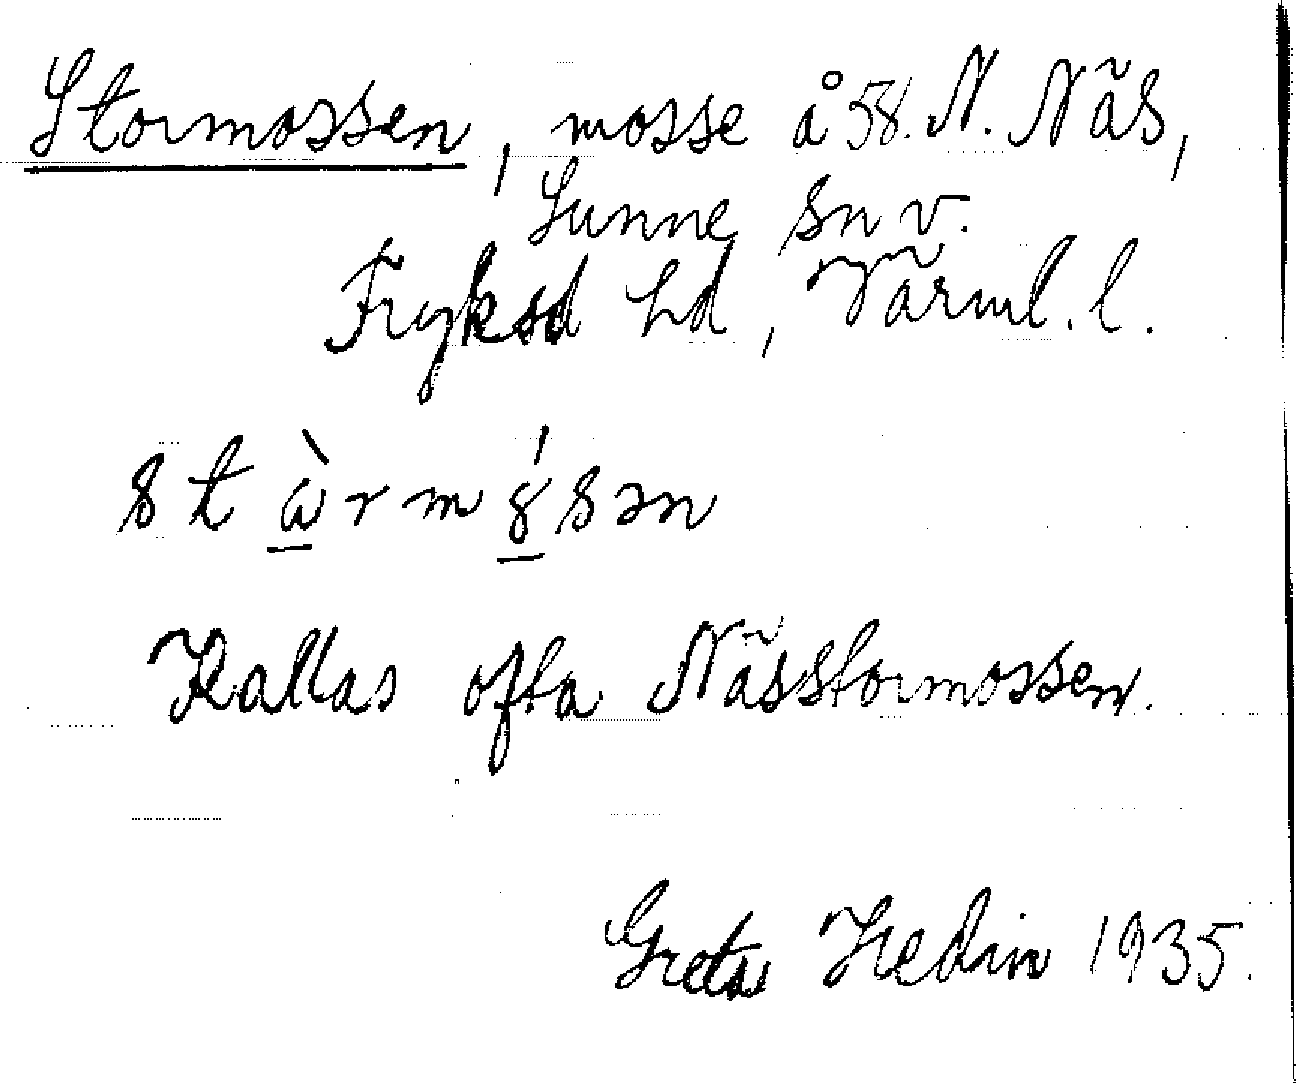 Stormossen, mosse å 58. N. Näs,
Sunne sn v.
Fryksd hd, Värml. l.
st ὼ r m 8́ sən
Kallas ofta Nässtormossen.
Greta Hedin 1935.